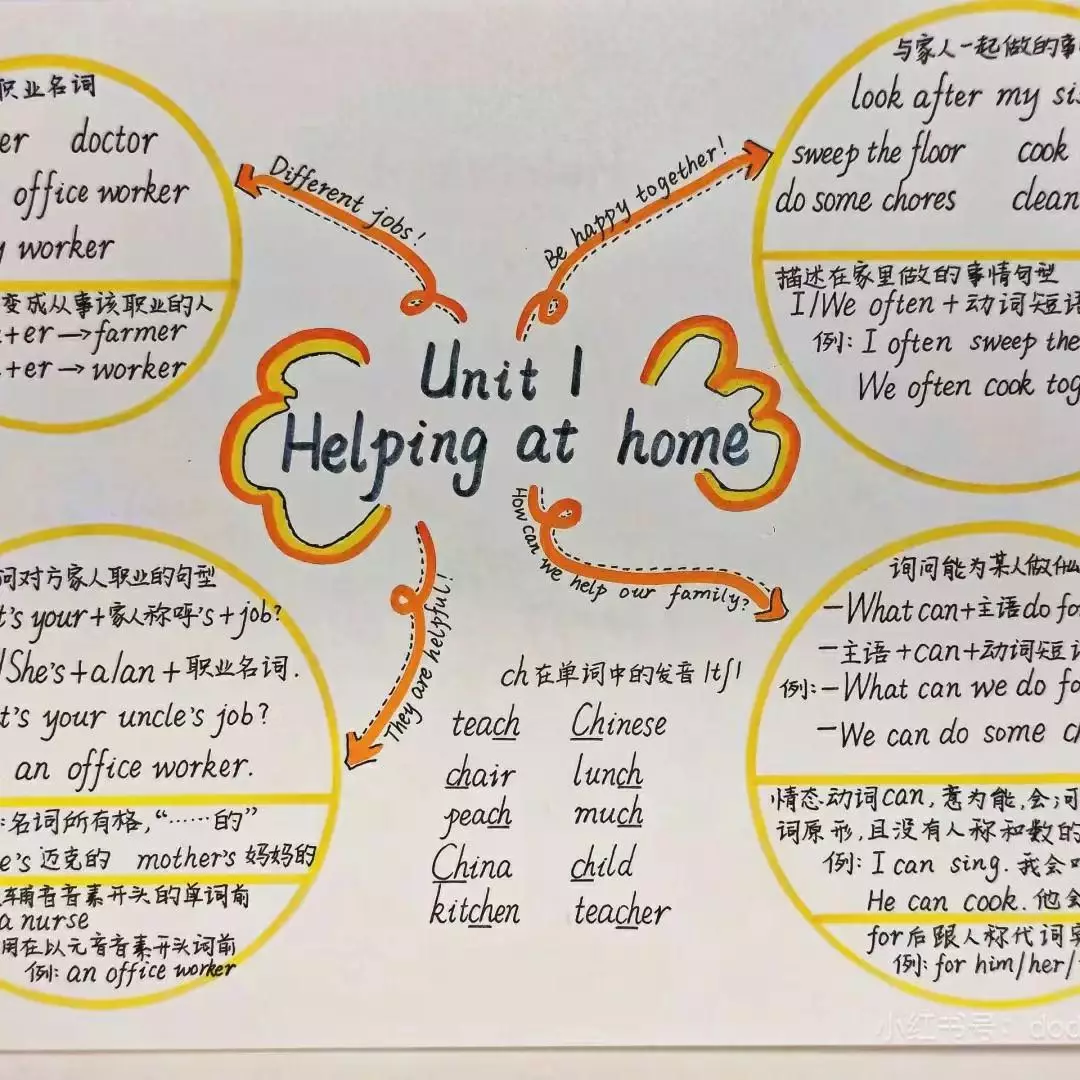 职业名词
er doctor
office worker
y worker
变成从事该职业的人
+er→farmer
+er→worker
Different jobs!
Be happy together!
与家人一起做的事
look after my sis
sweep the floor cook
do some chores clean
描述在家里做的事情句型
I/We often+动词短语
例: I often sweep the
We often cook tog
Unit 1
Helping at home
They are helpful!
How can we help our family?
问对方家人职业的句型
t's your+家人称呼's+job?
/She's+a/an+职业名词.
t's your uncle's job?
an office worker.
:名词所有格,“……的”
e's 迈克的 mother's 妈妈的
辅音音素开头的单词前
a nurse
用在以元音音素开头词前
例: an office worker
ch在单词中的发音/tʃ/
teach Chinese
chair lunch
peach much
China child
kitchen teacher
询问能为某人做什么
—What can+主语do fo
—主语+can+动词短语
例:—What can we do fo
—We can do some c
情态动词can,意为能,会;
词原形,且没有人称和数的
例: I can sing.我会
He can cook.他会
for后跟人称代词宾
例: for him/her/
小红书号: dod